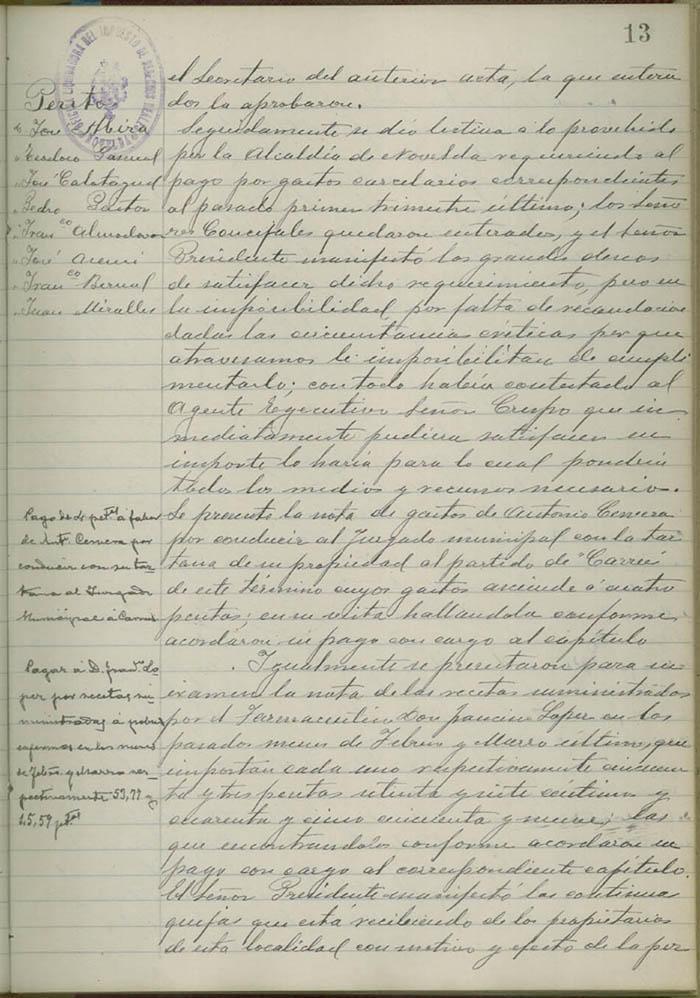 13
el Secretario del anterior acta, la que entera
dos la aprobaron.
Peritos
José Abiza
Teodoro Pascual
José Calatayud
Pedro Pastor
Franco Almodovar
José Asensi
Franco Bernal
Juan Miralles
Seguidamente se dio lectura a lo provehido
por la Alcaldía de Novelda requeriendo al
pago por gastos carcelarios correspondientes
al pasado primer trimestre último; los Seño
res Concejales quedaron enterados, y el Señor
Presidente manifestó los grandes deseos
de satisfacer dicho requerimiento, pero en
la imposibilidad por falta de recaudacion
dadas las circunstancias críticas por que
atravesamos le imposibilitan de cumpli
mentarlo; con todo habia contestado al
Agente Egecutivo Señor Crespo que in
mediatamente pudiera satisfacer su
importe lo haria para lo cual pondria
todos los medios y recursos necesarios.
Pago de 4 ptas a favor
de Anto Cervera por
conducir con su tar-
tana al Juzgado
Municipal a Carrus
Se presentó la nota de gastos de Antonio Cervera
por conducir al Juzgado municipal con la tar
tana de su propiedad al partido de "Carrús
de este término cuyos gastos asciende a cuatro
pesetas; en su vista hallandola conforme
acordaron su pago con cargo al capítulo
Pagar á D. Franco Lo
per por recetas su
ministradas á pobres
enfermos en los meses
de Febro y Marzo res-
pectivamente 53,77 y
45,59 ptas
Igualmente se presentaron para su
examen la nota de las recetas suministradas
por el Farmaceutico Don Francisco Loper en los
pasados meses de Febrero y Marzo último, que
importan cada uno respectivamente cincuen
ta y tres pesetas setenta y siete centimos y
cuarenta y cinco cincuenta y nueve; las
que encontrandolas conforme acordaron su
pago con cargo al correspondiente capítulo.
El Señor Presidente manifestó las continuas
quejas que está recibiendo de los propietarios
de esta localidad con motivo y efecto de la per